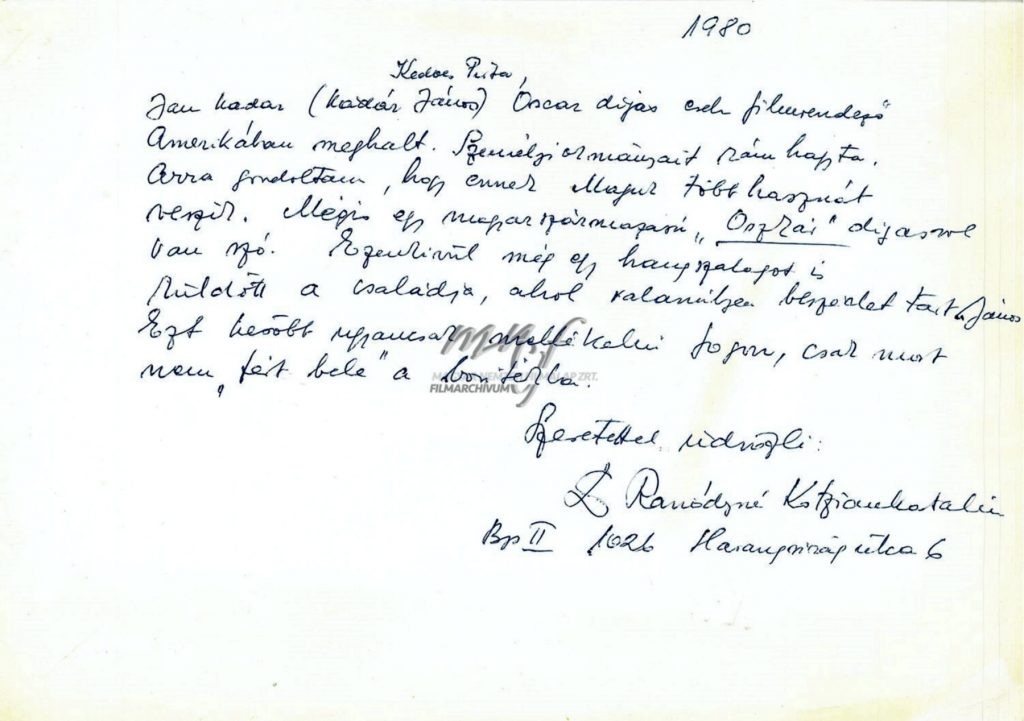 1980
Kedves Pista,
Jan Kadar (Kádár János) Oscar díjas cseh filmrendező
Amerikában meghalt. Személyi okmányait rám hagyta.
Arra gondoltam, hogy ennek Maguk több hasznát
veszik. Mégis egy magyar származású „Oszkár" díjasról
van szó. Ezenkivül még egy hangszalagot is
küldött a családja, ahol valamilyen beszédet tart János
Ezt később ugyancsak mellékelni fogom, csak most
nem „fért bele" a boritékba.
MAGYAR NEMZETI FILMALAP ZRT.
FILMARCHÍVUM
Szeretettel üdvözli:
Ranódyné Kotzian Katalin
Bp II 1026 Harangvirág utca 6